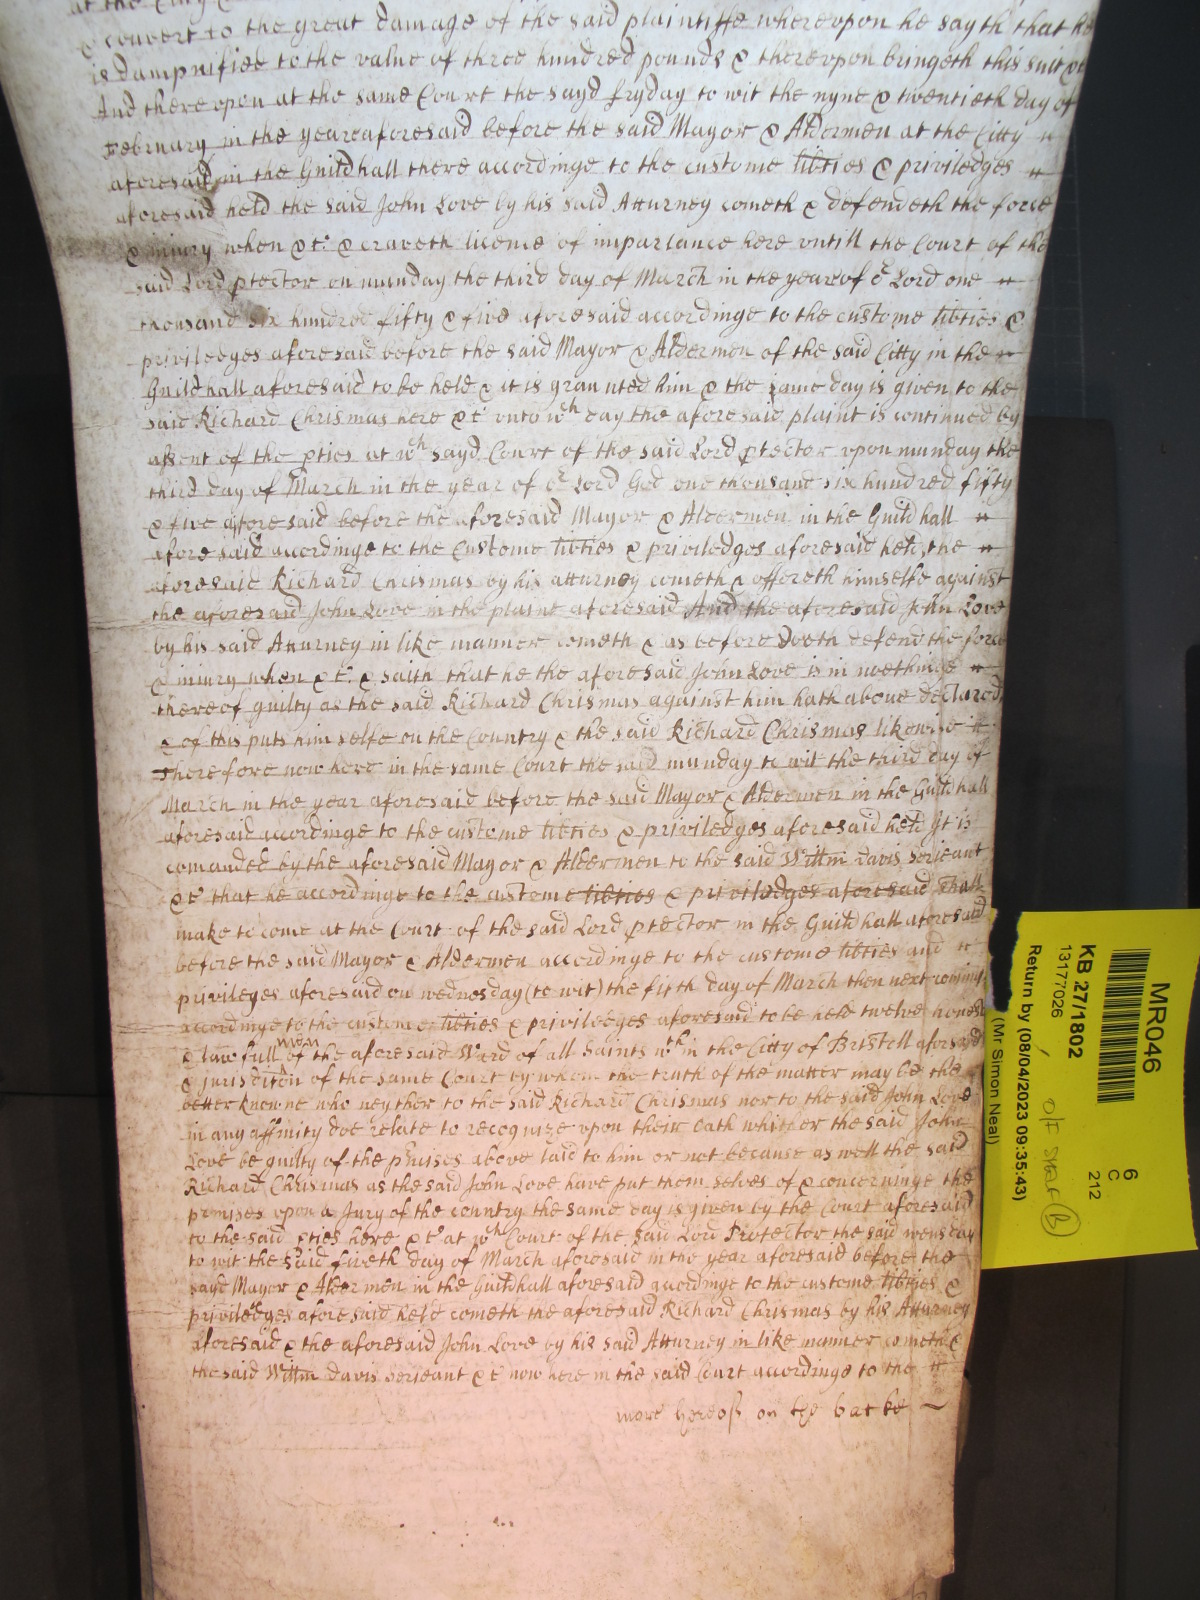 at the Citty
& convert to the great damage of the said plaintiffe whereupon he sayth that he
is dampnified to the value of three hundred pounds & thereupon bringeth this suit &c
And thereupon at the same Court the sayd fryday to wit the nyne & twentieth day of
February in the yeare aforesaid before the said Mayor & Aldermen at the Citty
aforesaid in the Guildhall there accordinge to the custome libties & priviledges
aforesaid held the said John Love by his said Atturney cometh & defendeth the force
& iniury when &c: & craveth licence of imparlance here untill the Court of the
said Lord ptector on munday the third day of March in the yeare of or Lord one
thousand six hundred fifty & five aforesaid accordinge to the custome libties &
priviledges aforesaid before the said Mayor & Aldermen of the said Citty in the
Guildhall aforesaid to be held & it is graunted him & the same day is given to the
said Richard Chrismas here &c unto wch day the aforesaid plaint is continued by
assent of the pties at wch sayd Court of the said Lord ptector upon munday the
third day of March in the year of or Lord God one thousand six hundred fifty
& five aforesaid before the aforesaid Mayor & Aldermen in the Guildhall
aforesaid acordinge to the Custome libties & priviledges aforesaid held the
aforesaid Richard Chrismas by his atturney cometh & offereth himselfe against
the aforesaid John Love in the plaint aforesaid And the aforesaid John Love
by his said Atturney in like manner cometh & as before doeth defend the force
& iniury when &c: & saith that he the aforesaid John Love is in noethinge
thereof guilty as the said Richard Chrismas against him hath above declared
& of this puts himselfe on the Country & the said Richard Chrismas likewise
Therefore now here in the same Court the said munday to wit the third day of
March in the year aforesaid before the said Mayor & Aldermen in the Guildhall
aforesaid accordinge to the custome libties & priviledges aforesaid held It is
comanded by the aforesaid Mayor & Aldermen to the said Willm Davis serieant
&c that he accordinge to the custome libties & priviledges aforesaid shall
make to come at the Court of the said Lord ptector in the Guildhall aforesaid
before the said Mayor & Aldermen accordinge to the custome libties and
privileges aforesaid on wednesday (to wit) the fifth day of March then next coming
accordinge to the custome libties & priviledges aforesaid to be held twelve honest
& lawfull men of the aforesaid Ward of all Saints wthin the Citty of Bristoll aforsayd
& iurisdiction of the same Court by whom the truth of the matter may be the
better knowne who neyther to the said Richard Chrismas nor to the said John Love
in any affinity doe relate to recognize upon their oath whither the said John
Love be guilty of the pmises above laid to him or not because as well the said
Richard Chrismas as the said John Love have put themselves of & concerninge the
premises upon a Jury of the country the same day is given by the Court aforesaid
to the said pties here &c at wch Court of the said Lord Protector the said wensday
to wit the said fiveth day of March aforesaid in the year aforesaid before the
sayd Mayor & Aldermen in the Guildhall aforesaid acordinge to the custome libties &
priviledges aforesaid held cometh the aforesaid Richard Chrismas by his Atturney
aforesaid & the aforesaid John Love by his said Atturney in like manner cometh &
the said Willm Davis serieant &c now here in the said Court accordinge to the
more hereof on the backe
MR046
6
C
212
KB 27/1802
13177026
Return by (08/04/2023 09:35:43)
(Mr Simon Neal)
B